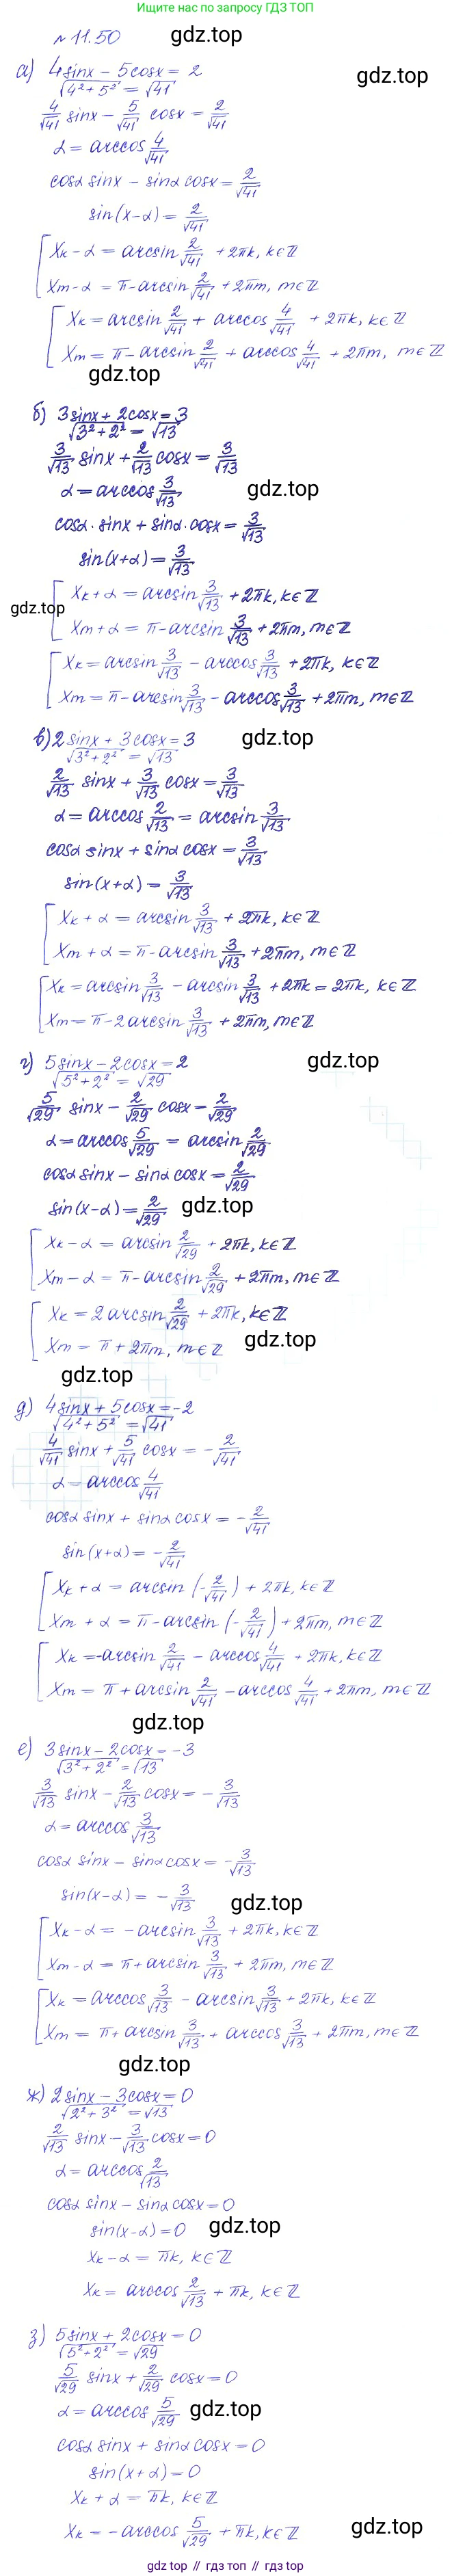 Ищите по запросу ГДЗ ТОП
№ 11.50 gdz.top
а) 4sinx - 5cosx = 2 gdz.top
√(4² + 5²) = √41
4/√41 sinx - 5/√41 cosx = 2/√41
α = arccos 4/√41
cosα sinx - sinα cosx = 2/√41
sin(x-α) = 2/√41
[ Xk - α = arcsin 2/√41 + 2πk, k∈Z
Xm - α = π - arcsin 2/√41 + 2πm, m∈Z
[ Xk = arcsin 2/√41 + arccos 4/√41 + 2πk, k∈Z
Xm = π - arcsin 2/√41 + arccos 4/√41 + 2πm, m∈Z
gdz.top
б) 3sinx + 2cosx = 3
√(3² + 2²) = √13
3/√13 sinx + 2/√13 cosx = 3/√13
α = arccos 3/√13 gdz.top
cosα·sinx + sinα·cosx = 3/√13
sin(x+α) = 3/√13
[ Xk + α = arcsin 3/√13 + 2πk, k∈Z
gdz.top
Xm + α = π - arcsin 3/√13 + 2πm, m∈Z
[ Xk = arcsin 3/√13 - arccos 3/√13 + 2πk, k∈Z
Xm = π - arcsin 3/√13 - arccos 3/√13 + 2πm, m∈Z
в) 2sinx + 3cosx = 3 gdz.top
√(3² + 2²) = √13
2/√13 sinx + 3/√13 cosx = 3/√13
α = arccos 2/√13 = arcsin 3/√13
cosα sinx + sinα cosx = 3/√13
sin(x+α) = 3/√13
[ Xk + α = arcsin 3/√13 + 2πk, k∈Z
Xm + α = π - arcsin 3/√13 + 2πm, m∈Z
[ Xk = arcsin 3/√13 - arcsin 3/√13 + 2πk = 2πk, k∈Z
Xm = π - 2arcsin 3/√13 + 2πm, m∈Z
г) 5sinx - 2cosx = 2 gdz.top
√(5² + 2²) = √29
5/√29 sinx - 2/√29 cosx = 2/√29
α = arccos 5/√29 = arcsin 2/√29
cosα sinx - sinα cosx = 2/√29
sin(x-α) = 2/√29 gdz.top
[ Xk - α = arcsin 2/√29 + 2πk, k∈Z
Xm - α = π - arcsin 2/√29 + 2πm, m∈Z
[ Xk = 2arcsin 2/√29 + 2πk, k∈Z
Xm = π + 2πm, m∈Z gdz.top
gdz.top
д) 4sinx + 5cosx = -2
√(4² + 5²) = √41
4/√41 sinx + 5/√41 cosx = - 2/√41
α = arccos 4/√41
cosα sinx + sinα cosx = - 2/√41
sin(x+α) = - 2/√41
[ Xk + α = arcsin (- 2/√41) + 2πk, k∈Z
Xm + α = π - arcsin (- 2/√41) + 2πm, m∈Z
[ Xk = -arcsin 2/√41 - arccos 4/√41 + 2πk, k∈Z
Xm = π + arcsin 2/√41 - arccos 4/√41 + 2πm, m∈Z
gdz.top
е) 3sinx - 2cosx = -3
√(3² + 2²) = √13
3/√13 sinx - 2/√13 cosx = - 3/√13
α = arccos 3/√13
cosα sinx - sinα cosx = - 3/√13
sin(x-α) = - 3/√13 gdz.top
[ Xk - α = - arcsin 3/√13 + 2πk, k∈Z
Xm - α = π + arcsin 3/√13 + 2πm, m∈Z
[ Xk = arccos 3/√13 - arcsin 3/√13 + 2πk, k∈Z
Xm = π + arcsin 3/√13 + arccos 3/√13 + 2πm, m∈Z
gdz.top
ж) 2sinx - 3cosx = 0
√(2² + 3²) = √13
2/√13 sinx - 3/√13 cosx = 0
α = arccos 2/√13
cosα sinx - sinα cosx = 0
sin(x-α) = 0 gdz.top
Xk - α = πk, k∈Z
Xk = arccos 2/√13 + πk, k∈Z
з) 5sinx + 2cosx = 0
√(5² + 2²) = √29
5/√29 sinx + 2/√29 cosx = 0
α = arccos 5/√29 gdz.top
cosα sinx + sinα cosx = 0
sin(x+α) = 0
Xk + α = πk, k∈Z
Xk = - arccos 5/√29 + πk, k∈Z gdz.top
gdz.top // гдз топ // gdz top